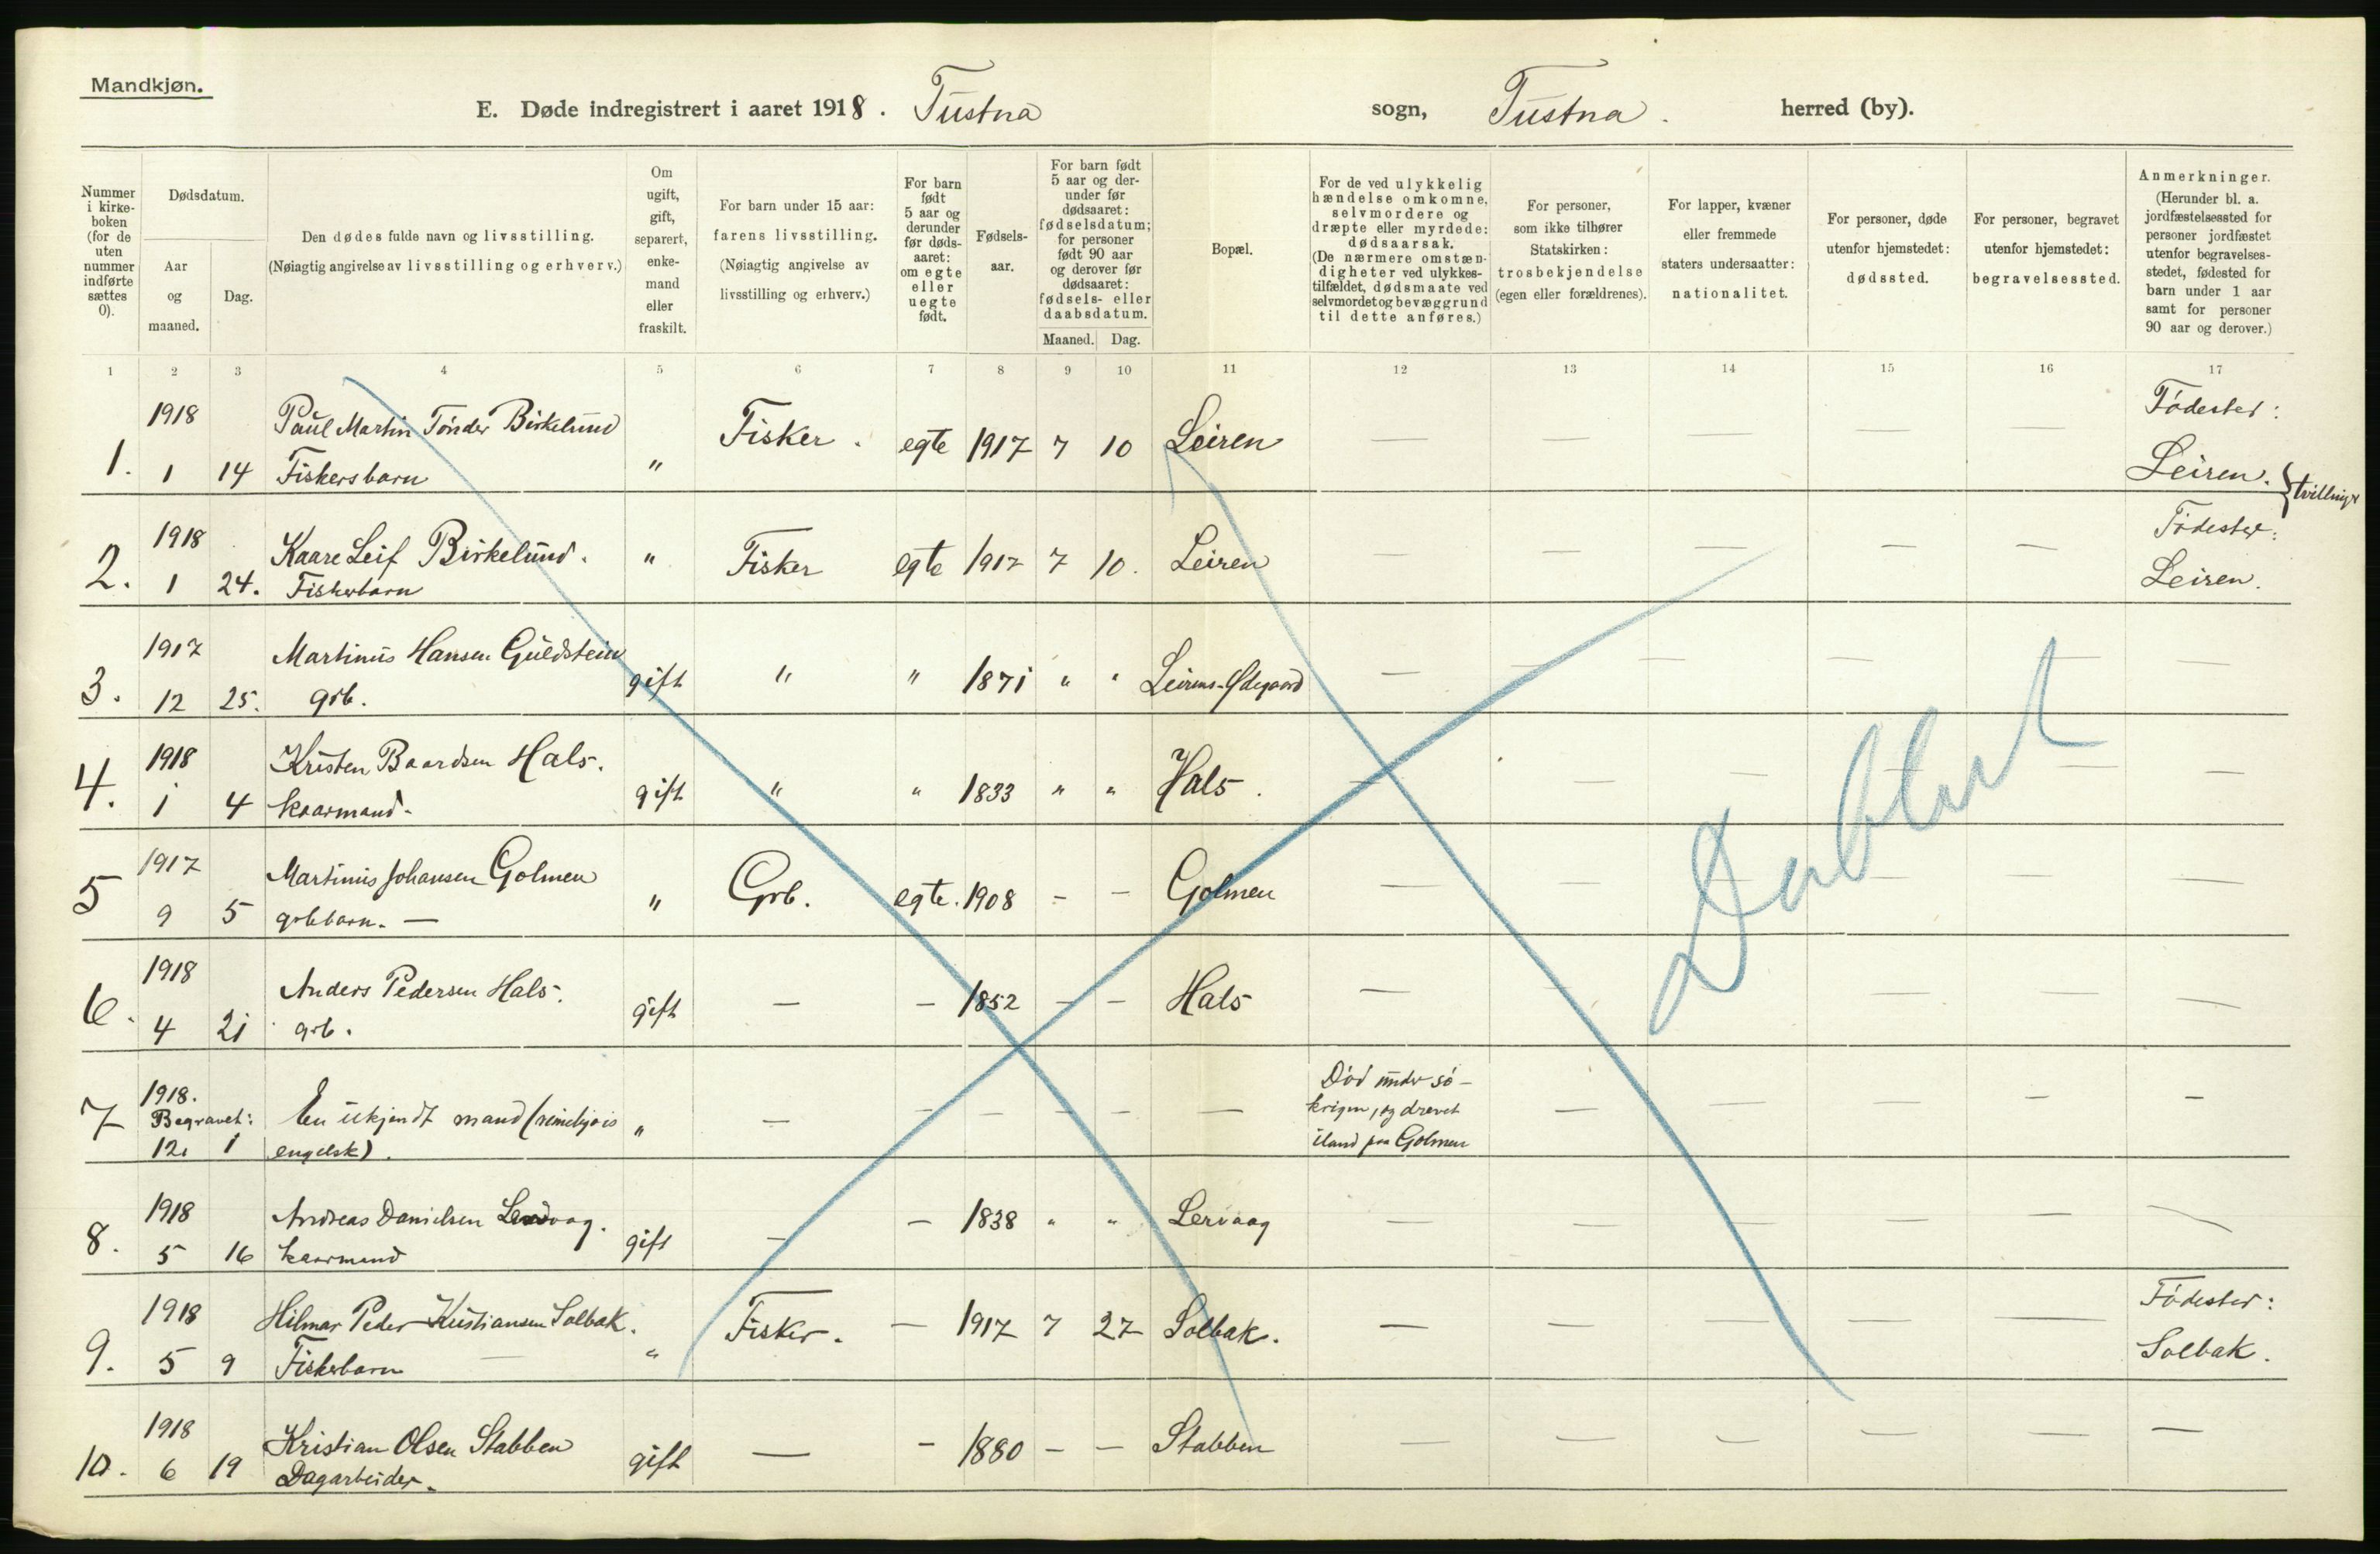 Mandkjøn.
E. Døde indregistrert i aaret 1918. Tustna sogn, Tustna. herred (by).
Nummer i kirke-boken (for de uten nummer indførte sættes 0).
Dødsdatum.
Aar og maaned.
Dag.
Den dødes fulde navn og livsstilling.
(Nøiagtig angivelse av livsstilling og erhverv.)
Om ugift, gift, separert, enke-mand eller fraskilt.
For barn under 15 aar: farens livsstilling.
(Nøiagtig angivelse av livsstilling og erhverv.)
For barn født 5 aar og derunder før døds-aaret: om egte eller uegte født.
Fødsels-aar.
For barn født 5 aar og der-under før dødsaaret: fødselsdatum; for personer født 90 aar og derover før dødsaaret: fødsels- eller daabsdatum.
Maaned. Dag.
Bopæl.
For de ved ulykkelig hændelse omkomne, selvmordere og dræpte eller myrdede: dødsaarsak.
(De nærmere omstæn-digheter ved ulykkes-tilfældet, dødsmaate ved selvmordet og bevæggrund til dette anføres.)
For personer, som ikke tilhører Statskirken: trosbekjendelse (egen eller forældrenes).
For lapper, kvæner eller fremmede staters undersaatter: nationalitet.
For personer, døde utenfor hjemstedet: dødssted.
For personer, begravet utenfor hjemstedet: begravelsessted.
Anmerkninger.
(Herunder bl. a. jordfæstelsessted for personer jordfæstet utenfor begravelses-stedet, fødested for barn under 1 aar samt for personer 90 aar og derover.)
1 2 3 4 5 6 7 8 9 10 11 12 13 14 15 16 17
1918 Paul Martin Tønder Birkelund Fisker. egte 1917 7 10 Leiren — — — — — Fødested:
1. 1 14 Fiskersbarn " Leiren. } tvillinger
1918 Kaare Leif Birkelund. " Fisker egte 1917 7 10. Leiren — — — — — Fødested:
2. 1 24. Fiskerbarn Leiren.
1917 Martinus Hansen Guldstein gift " " 1871 " " Leirens-Ødegaard — — — — — —
3. 12 25. grb.
1918 Kristen Baardsen Hals. gift " " 1833 " " Hals. — — — — — —
4. 1 4 kaarmand.
1917 Martinus Johansen Golmen " Grb. egte. 1908 - - Golmen — — — — — —
5 9 5 grbbarn. —
1918 Anders Pedersen Hals. gift — - 1852 - - Hals — — — — — —
6. 4 21 grb.
1918. Død under sø-
7 Begravet: En ukjendt mand (rimeligvis " — - - - - — krigen, og drevet — — — - -
12. 1 engelsk). iland paa Golmen
1918 Andreas Danielsen Lervaag. gift - - 1838 " " Lervaag — — — — — —
8. 5 16 kaarmand
1918 Hilmar Peder Kristiansen Solbak. " Fisker. — 1917 7 27 Solbak. — — — — — Fødested:
9. 5 9 Fiskerbarn — Solbak.
1918 Kristian Olsen Stabben gift — - 1880 - - Stabben — — — — — —
10. 6 19 Dagarbeider.
Dablert